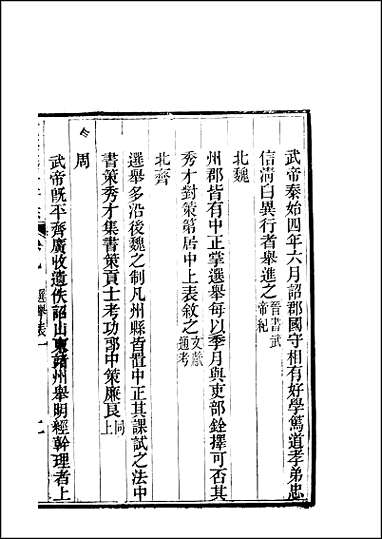 武帝秦始四年六月詔郡國守相有好學篤道孝弟忠
信淸白異行者舉進之晉書武帝紀
北魏
州郡皆有中正掌選舉每以季月與吏部銓擇可否其
秀才對策第居中上表敘之文獻通考
北齊
選舉多沿後魏之制凡州縣皆置中正其課試之法中
書策秀才集書策貢士考功郎中策廉良同上
周
武帝旣平齊廣收遺佚詔山東諸州舉明經幹理者上
選舉表一